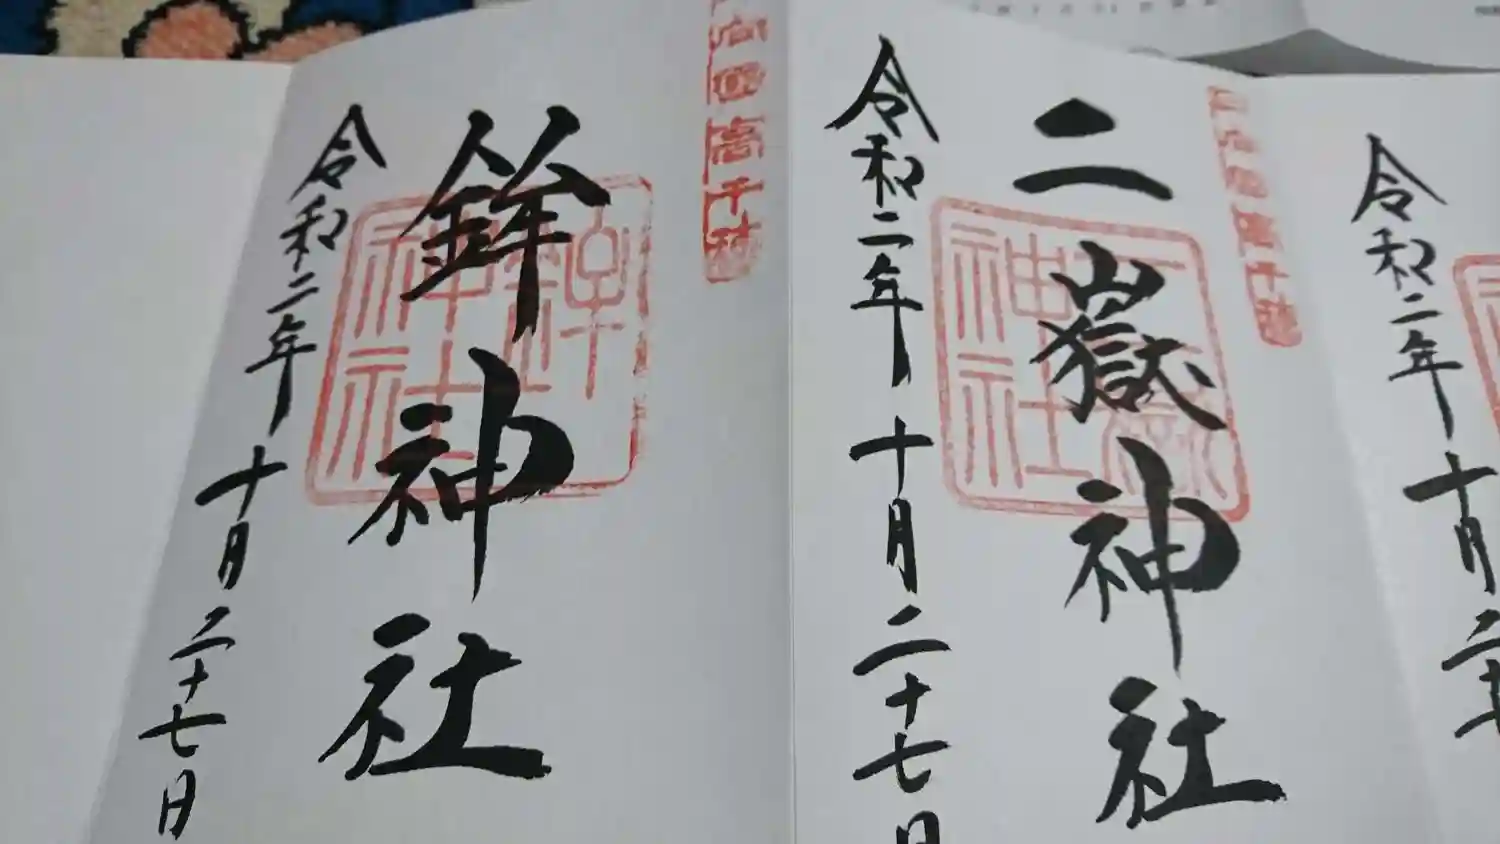 向国高千穂
鉾神社
鉾神社
令和二年十月二十七日
国高千穂
二嶽神社
二嶽神社
令和二年十月二十七日
令和二年十月二十